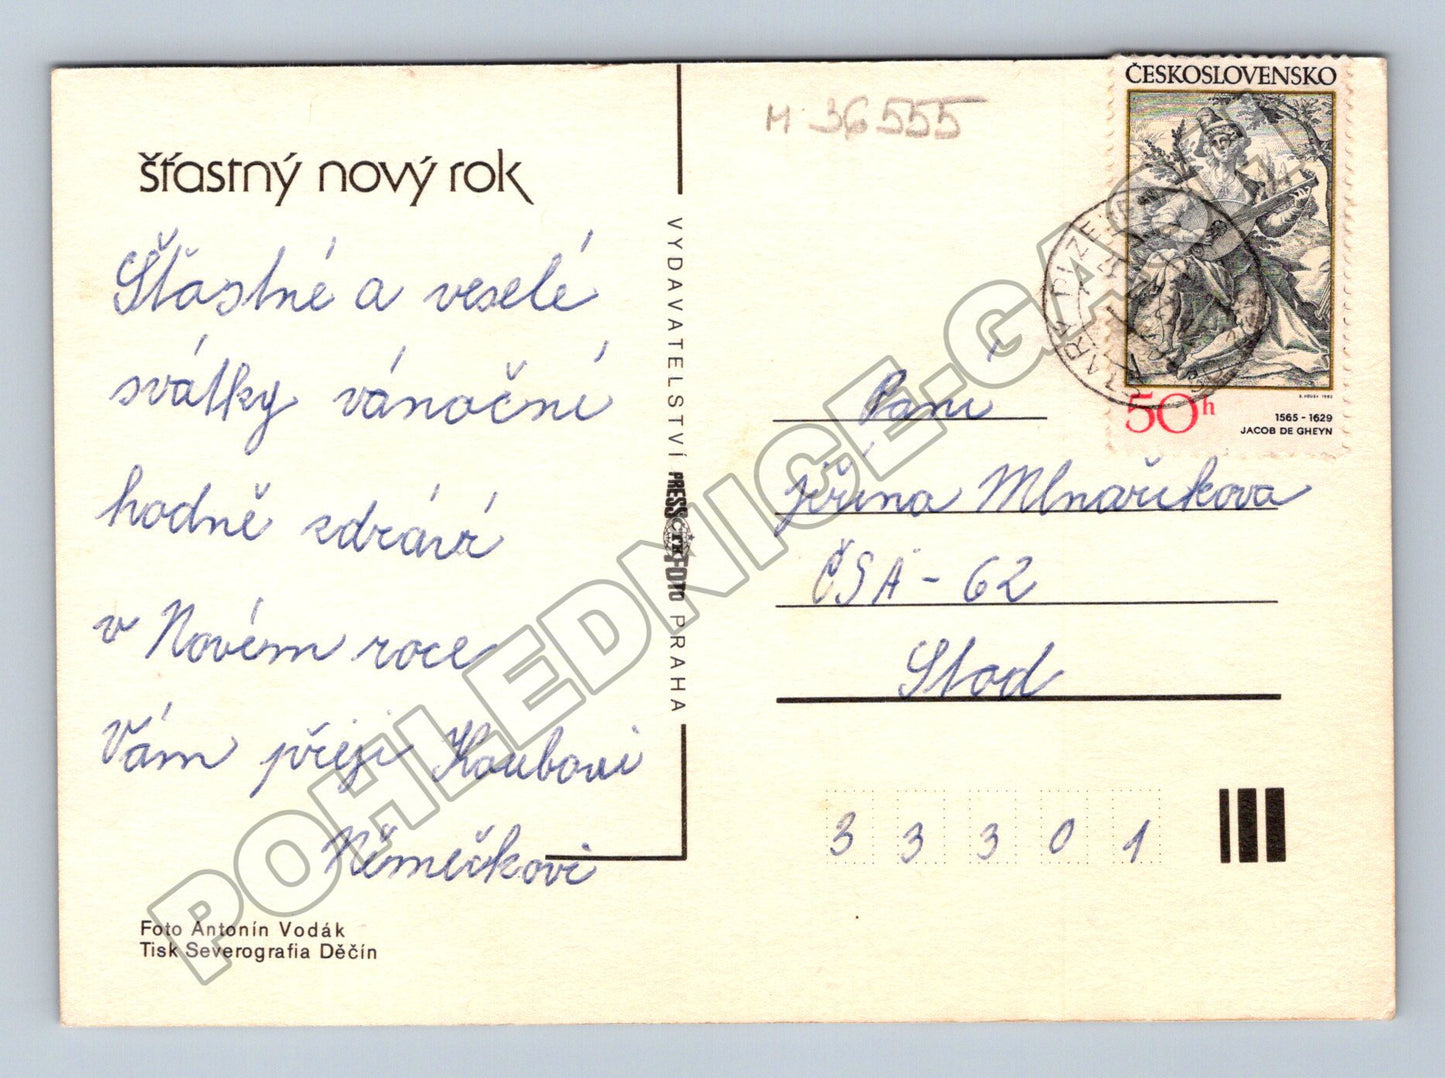 šťastný nový rok
Šťastné a veselé
svátky vánoční
hodně zdraví
v Novém roce
Vám přeji Koubovi
Němečkovi
Foto Antonín Vodák
Tisk Severografia Děčín
VYDAVATELSTVÍ PRESSFOTO PRAHA
ČTK
M 36555
ČESKOSLOVENSKO
50h
1565 - 1629
JACOB DE GHEYN
Paní
Jiřina Mlnaříkova
ČSA - 62
Stod
33301
POHLEDNICE.GA